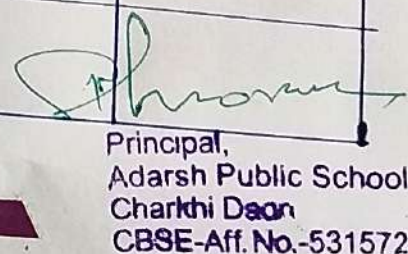 Principal,
Adarsh Public School
Charkhi Daon
CBSE-Aff. No.-531572